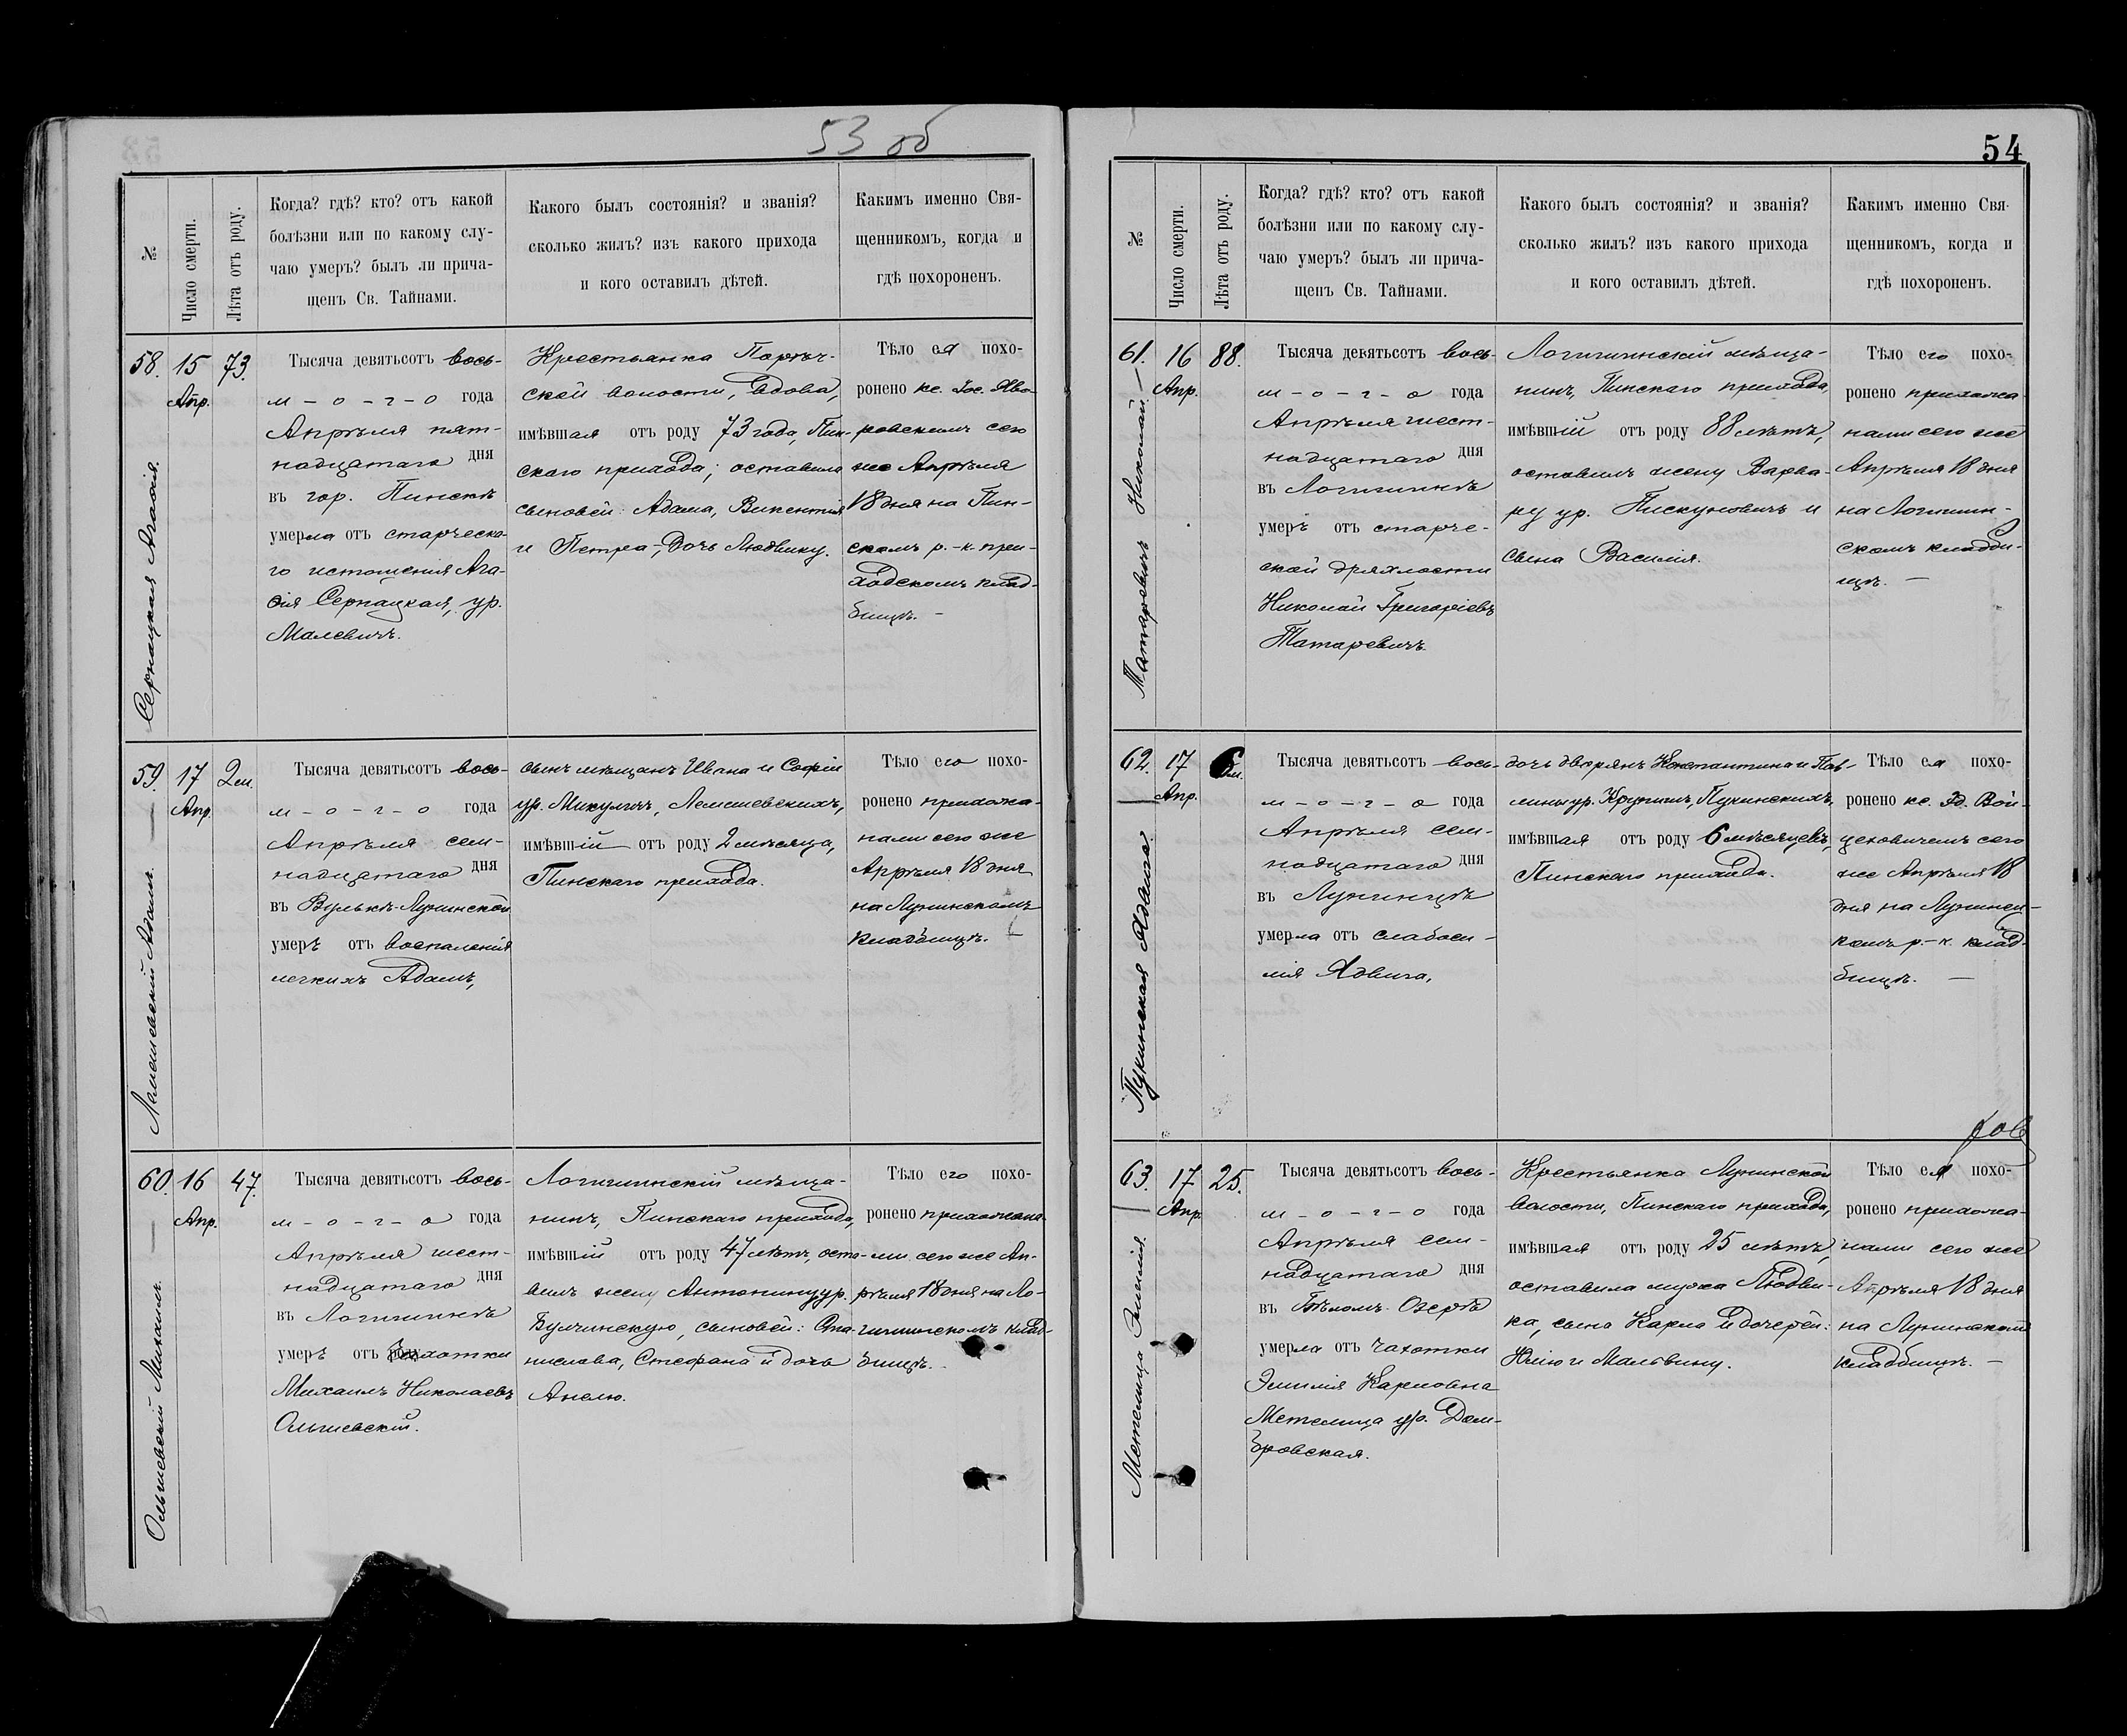 53 об
№
Число смерти.
Лѣта отъ роду.
Когда? гдѣ? кто? отъ какой
болѣзни или по какому слу-
чаю умеръ? былъ ли прича-
щенъ Св. Тайнами.
Какого былъ состоянія? и званія?
сколько жилъ? изъ какого прихода
и кого оставилъ дѣтей.
Какимъ именно Свя-
щенникомъ, когда и
гдѣ похороненъ.
58.
Сернацкая Агафія.
15
Апр.
73.
Тысяча девятьсотъ вось-
м-о-г-о года
Апрѣля пят-
надцатаго дня
въ гор. Пинскѣ
умерла отъ старческа-
го истощенія Ага-
фія Сернацкая, ур.
Малевичъ.
Крестьянка Порѣч-
ской волости, вдова,
имѣвшая отъ роду 73 года, Пин-
скаго прихода; оставила
сыновей: Адама, Викентія
и Петра, дочь Людвику.
Тѣло ея похо-
ронено кс. Іос. Яво-
ровскимъ сего
же Апрѣля
18 дня на Пин-
скомъ р.-к. при-
ходскомъ клад-
бищѣ. -
59.
Лемешевскій Адамъ.
17
Апр.
2 м.
Тысяча девятьсотъ вось-
м-о-г-о года
Апрѣля сем-
надцатаго дня
въ Вулькѣ-Лунинской
умеръ отъ воспаленія
легкихъ Адамъ,
сынъ мѣщанъ Ивана и Софіи
ур. Микуличъ, Лемешевскихъ,
имѣвшій отъ роду 2 мѣсяца,
Пинскаго прихода.
Тѣло его похо-
ронено прихожа-
нами сего же
Апрѣля 18 дня
на Лунинскомъ
кладбищѣ. -
60.
Ольшевскій Михаилъ.
16
Апр.
47.
Тысяча девятьсотъ вось-
м-о-г-о года
Апрѣля шест-
надцатаго дня
въ Логишинѣ
умеръ отъ чахотки
Михаилъ Николаевъ
Ольшевскій.
Логишинскій мѣща-
нинъ, Пинскаго прихода,
имѣвшій отъ роду 47 лѣтъ, оста-
вилъ жену Антонину ур.
Булчинскую, сыновей: Ста-
нислава, Стефана и дочь
Анелю.
Тѣло его похо-
ронено прихожана-
ми сего же Ап-
рѣля 18 дня на Ло-
гишинскомъ клад-
бищѣ.
54
№
Число смерти.
Лѣта отъ роду.
Когда? гдѣ? кто? отъ какой
болѣзни или по какому слу-
чаю умеръ? былъ ли прича-
щенъ Св. Тайнами.
Какого былъ состоянія? и званія?
сколько жилъ? изъ какого прихода
и кого оставилъ дѣтей.
Какимъ именно Свя-
щенникомъ, когда и
гдѣ похороненъ.
61.
Татаревичъ Николай.
16
Апр.
88.
Тысяча девятьсотъ вось-
м-о-г-о года
Апрѣля шест-
надцатаго дня
въ Логишинѣ
умеръ отъ старче-
ской дряхлости
Николай Григоріевъ
Татаревичъ.
Логишинскій мѣща-
нинъ, Пинскаго прихода,
имѣвшій отъ роду 88 лѣтъ,
оставилъ жену Варва-
ру ур. Пискуновичъ и
сына Василія.
Тѣло его похо-
ронено прихожа-
нами сего же
Апрѣля 18 дня
на Логишин-
скомъ кладби-
щѣ. -
62.
Пукинская Ядвига.
17
Апр.
6 м.
Тысяча девятьсотъ вось-
м-о-г-о года
Апрѣля сем-
надцатаго дня
въ Лунинцѣ
умерла отъ слабоси-
лія Ядвига,
дочь дворянъ Константина и Пав-
лины ур. Крупичъ, Пукинскихъ,
имѣвшая отъ роду 6 мѣсяцевъ,
Пинскаго прихода.
Тѣло ея похо-
ронено кс. Эд. Вой-
цеховичемъ сего
же Апрѣля 18
дня на Лунинец-
комъ р.-к. клад-
бищѣ. -
63.
Метелица Эмилія.
17
Апр.
25.
Тысяча девятьсотъ вось-
м-о-г-о года
Апрѣля сем-
надцатаго дня
въ Бѣломъ-Озерѣ
умерла отъ чахотки
Эмилія Карловна
Метелица ур. Дом-
бровская.
Крестьянка Лунинской
волости, Пинскаго прихода,
имѣвшая отъ роду 25 лѣтъ,
оставила мужа Людви-
ка, сына Карла и дочерей:
Юлію и Мальвину.
Тѣло ея похо-
ронено прихожа-
нами сего же
Апрѣля 18 дня
на Лунинскомъ
кладбищѣ. -